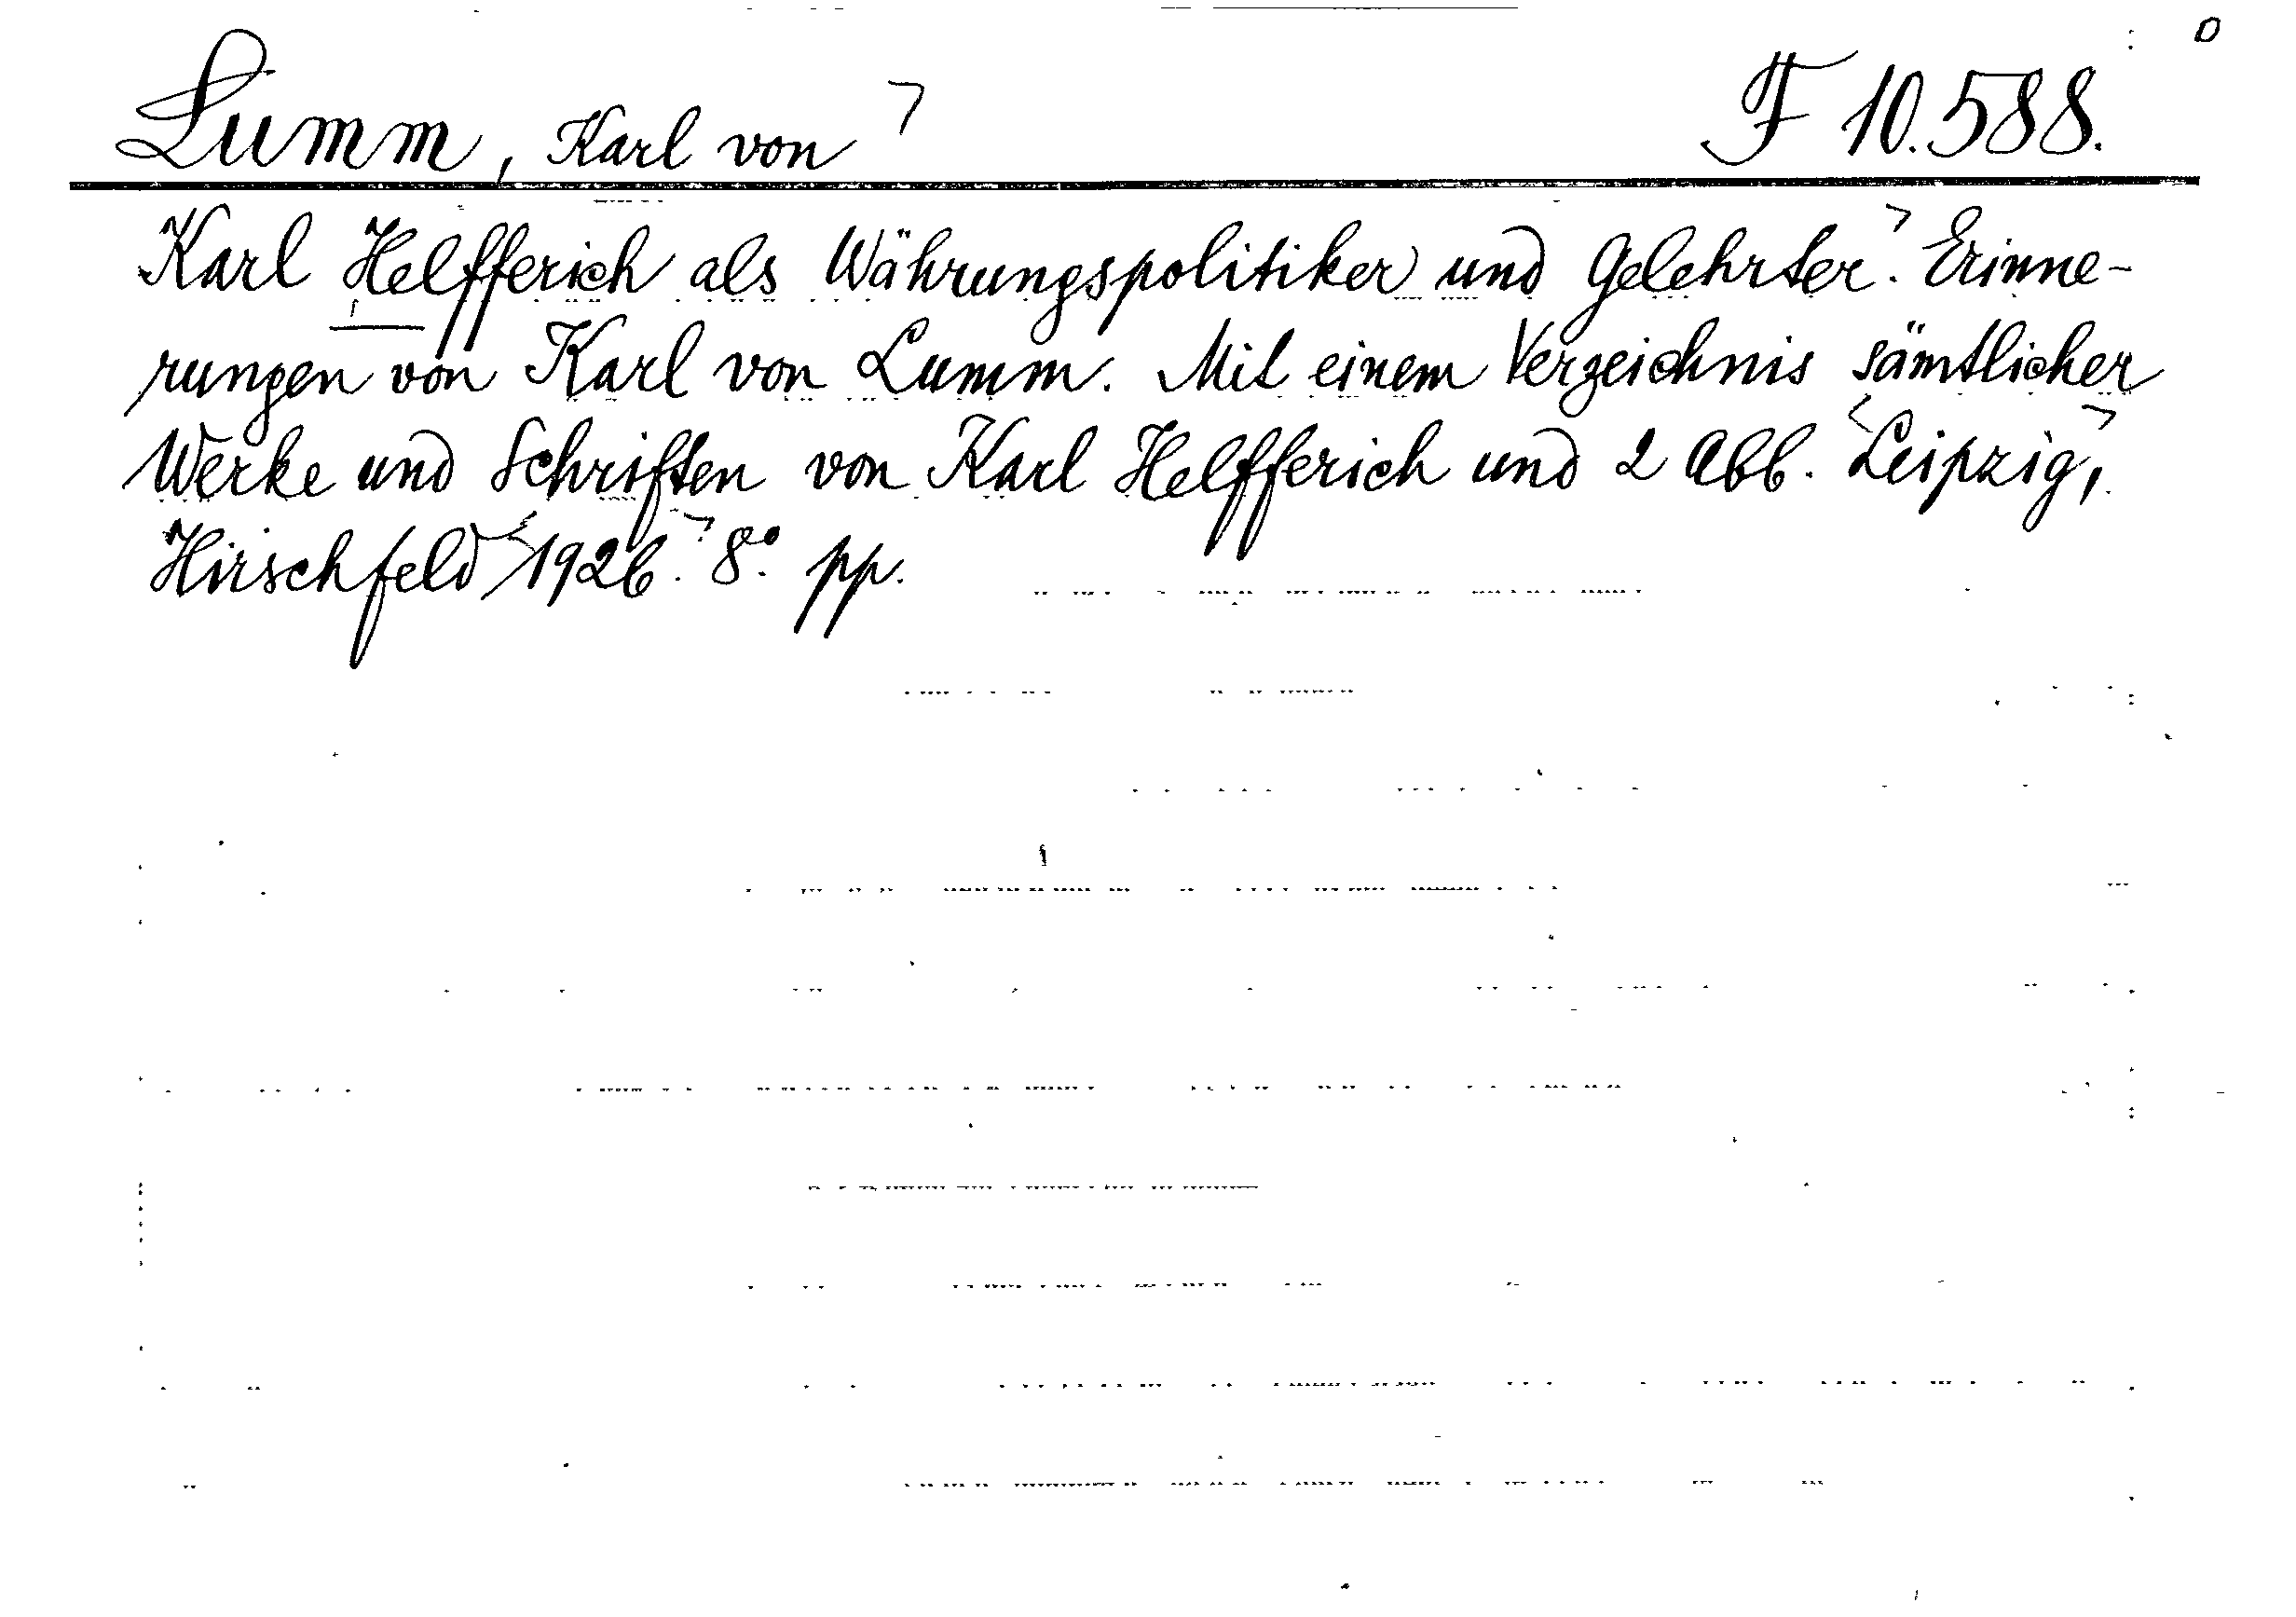 Lumm, Karl von F 10.588.
Karl Helfferich als Währungspolitiker und Gelehrter. Erinne-
rungen von Karl von Lumm. Mit einem Verzeichnis sämtlicher
Werke und Schriften von Karl Helfferich und 2 Abb. Leipzig,
Hirschfeld 1926. 8°. pp.